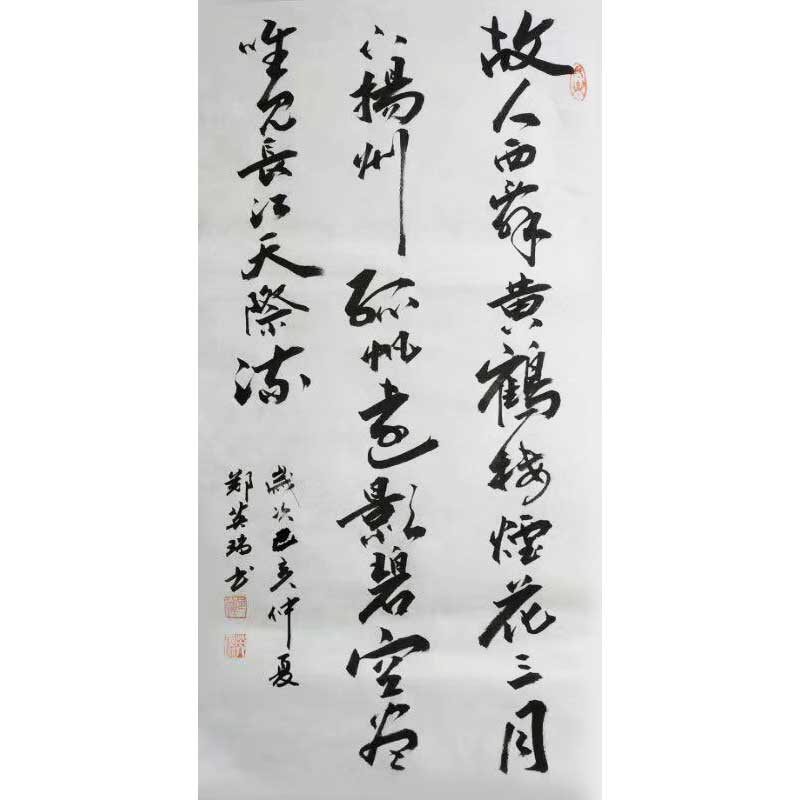 故人西辞黄鶴楼煙花三月
下揚州孤帆遠影碧空尽
唯見長江天際流
歲次己亥仲夏
鄭英瑞书